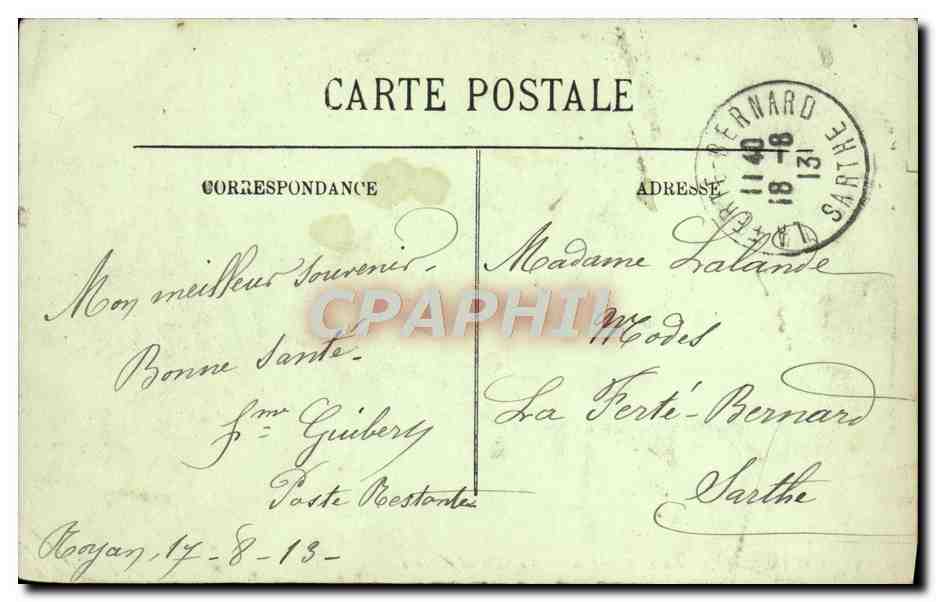 CARTE POSTALE
CORRESPONDANCE
ADRESSE
LA FERTE-BERNARD SARTHE
11 40
18 - 8
13
Mon meilleur souvenir.
Bonne santé.
Guibery
Poste Restante
Royan, 17 - 8 - 13 -
Madame Lalande
Modes
La Ferté-Bernard
Sarthe
CPAPHIL